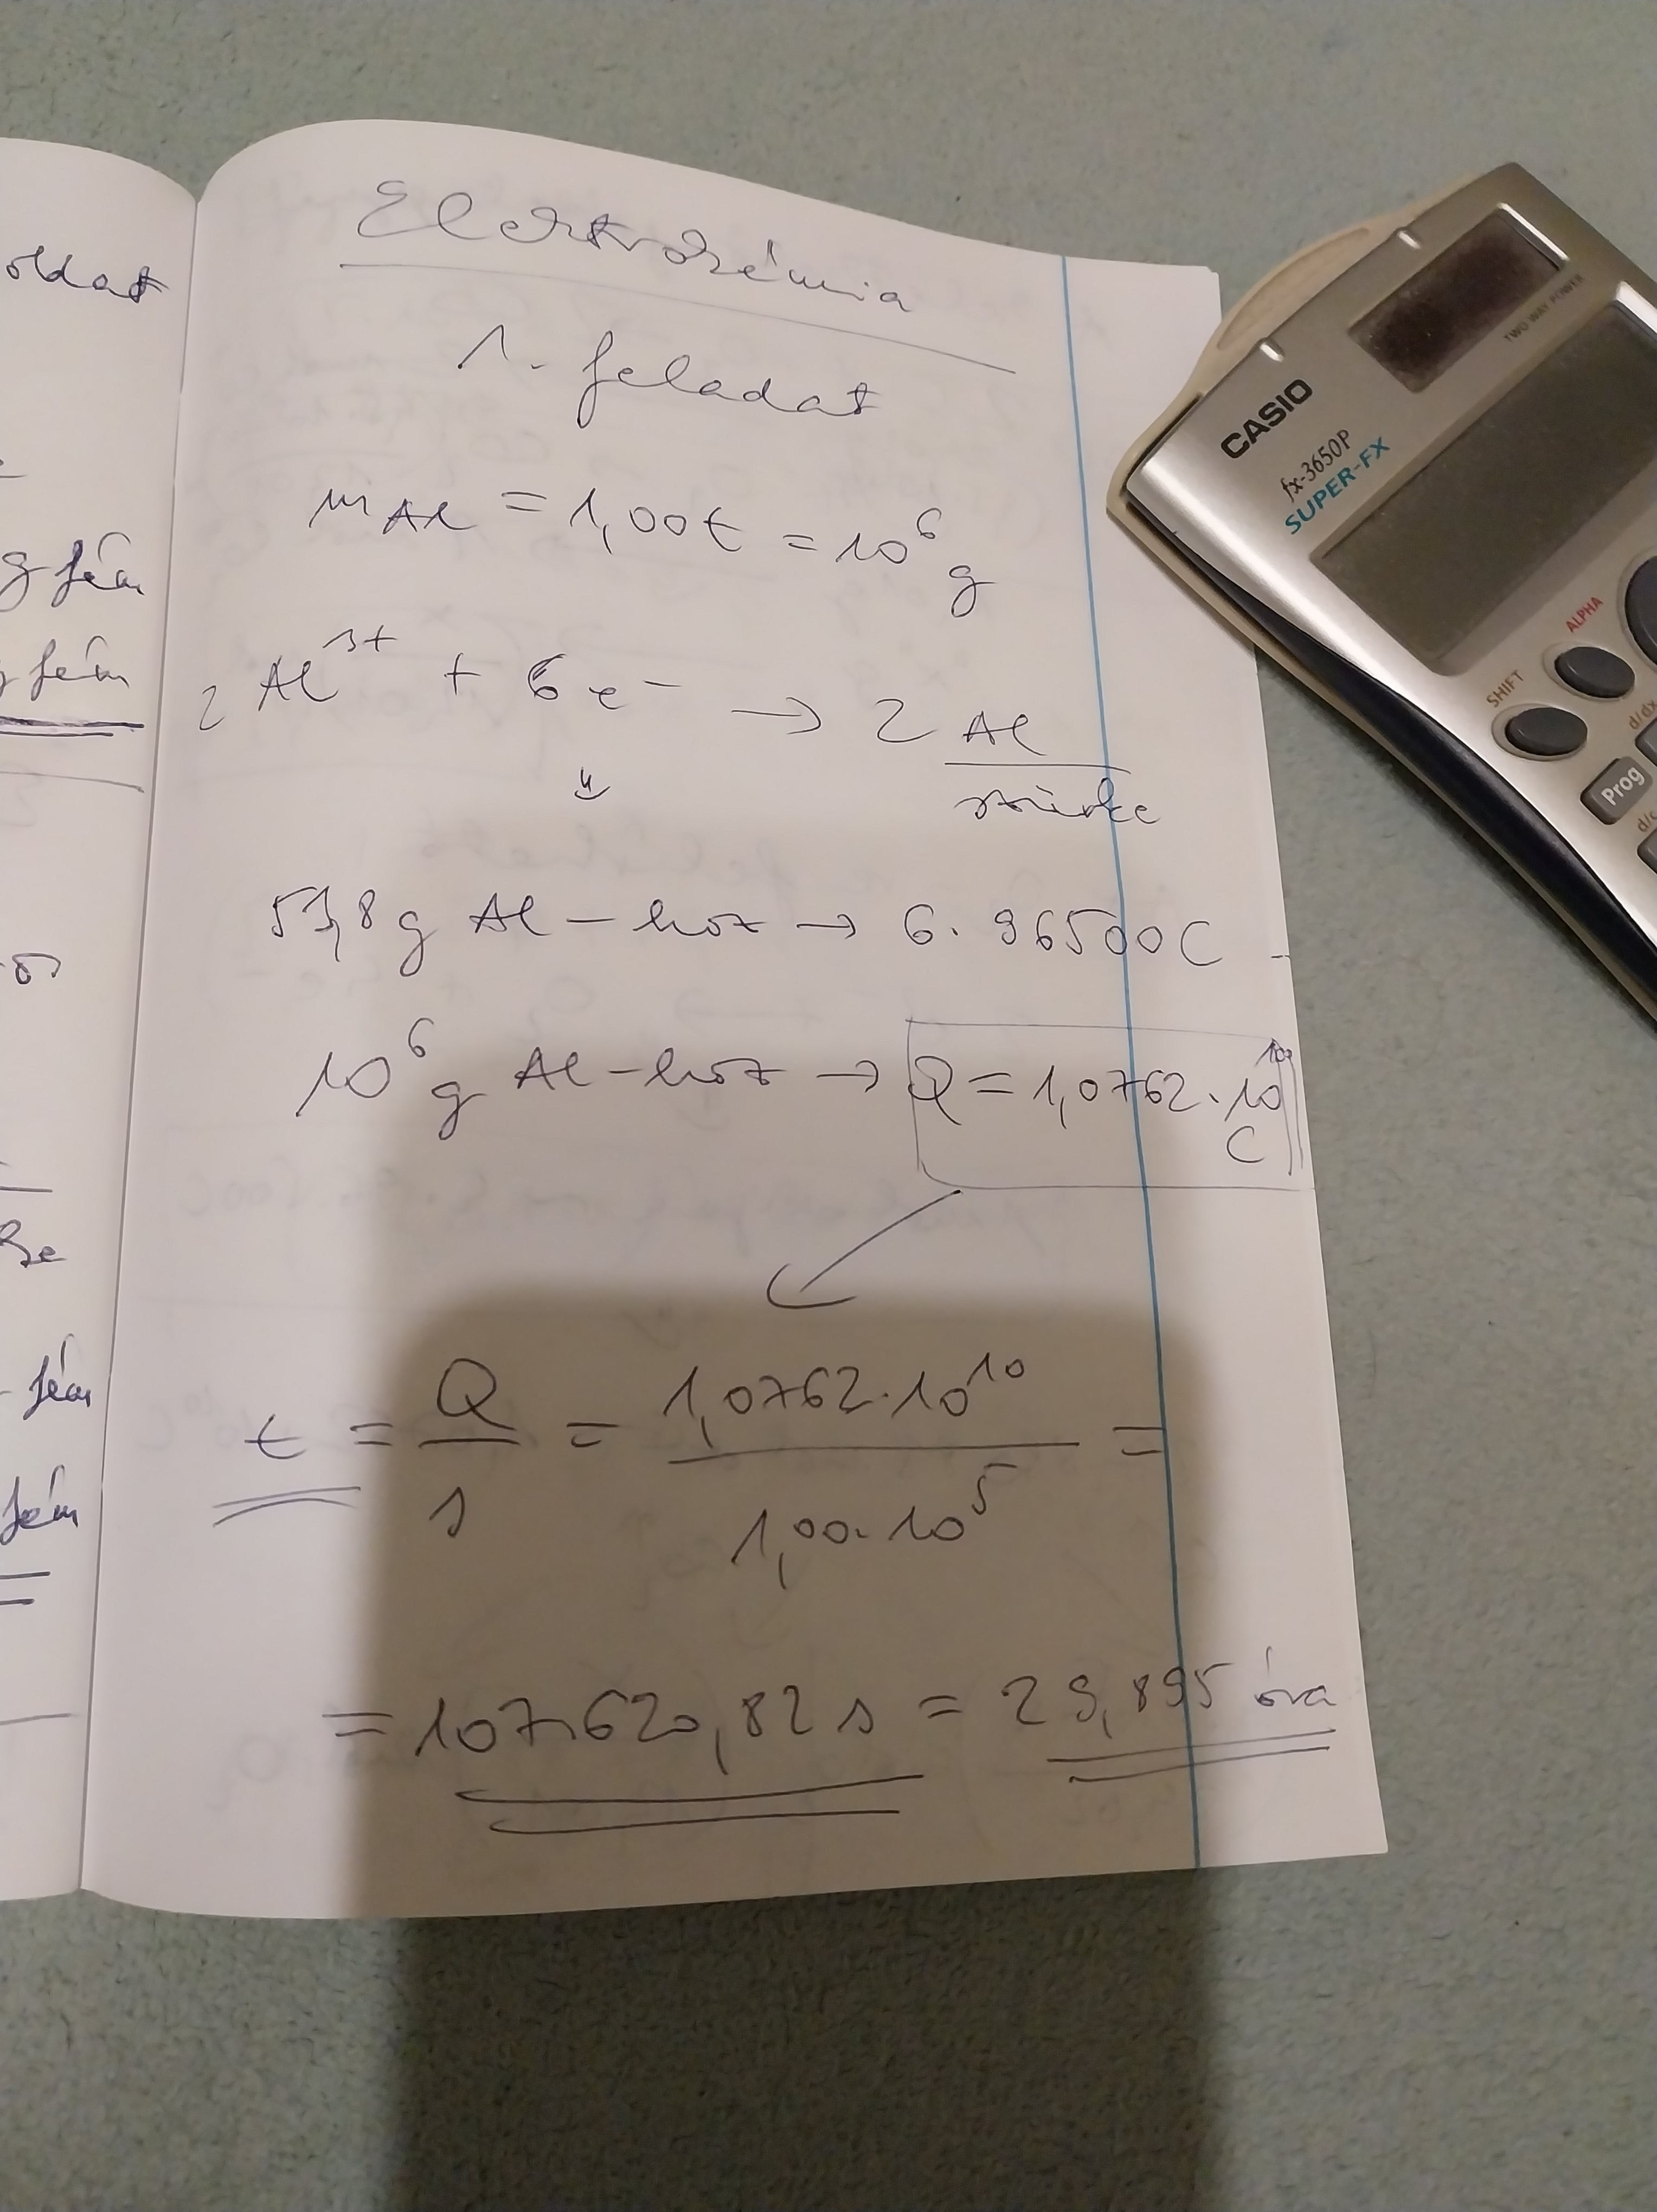 oldat
g fém
fém
Elektrokémia
1. feladat
m Al = 1,00t = 10⁶ g
2 Al³⁺ + 6 e⁻ → 2 Al
szürke
53,8 g Al-hoz → 6·96500 C
10⁶ g Al-hoz → Q = 1,0762·10¹⁰
C
t = Q/I = 1,0762·10¹⁰ / 1,00·10⁵ =
= 107.620,82 s = 29,895 óra
fém
fém
CASIO
fx-3650P
SUPER-FX
TWO WAY POWER
ALPHA
SHIFT
d/dx
Prog
d/c